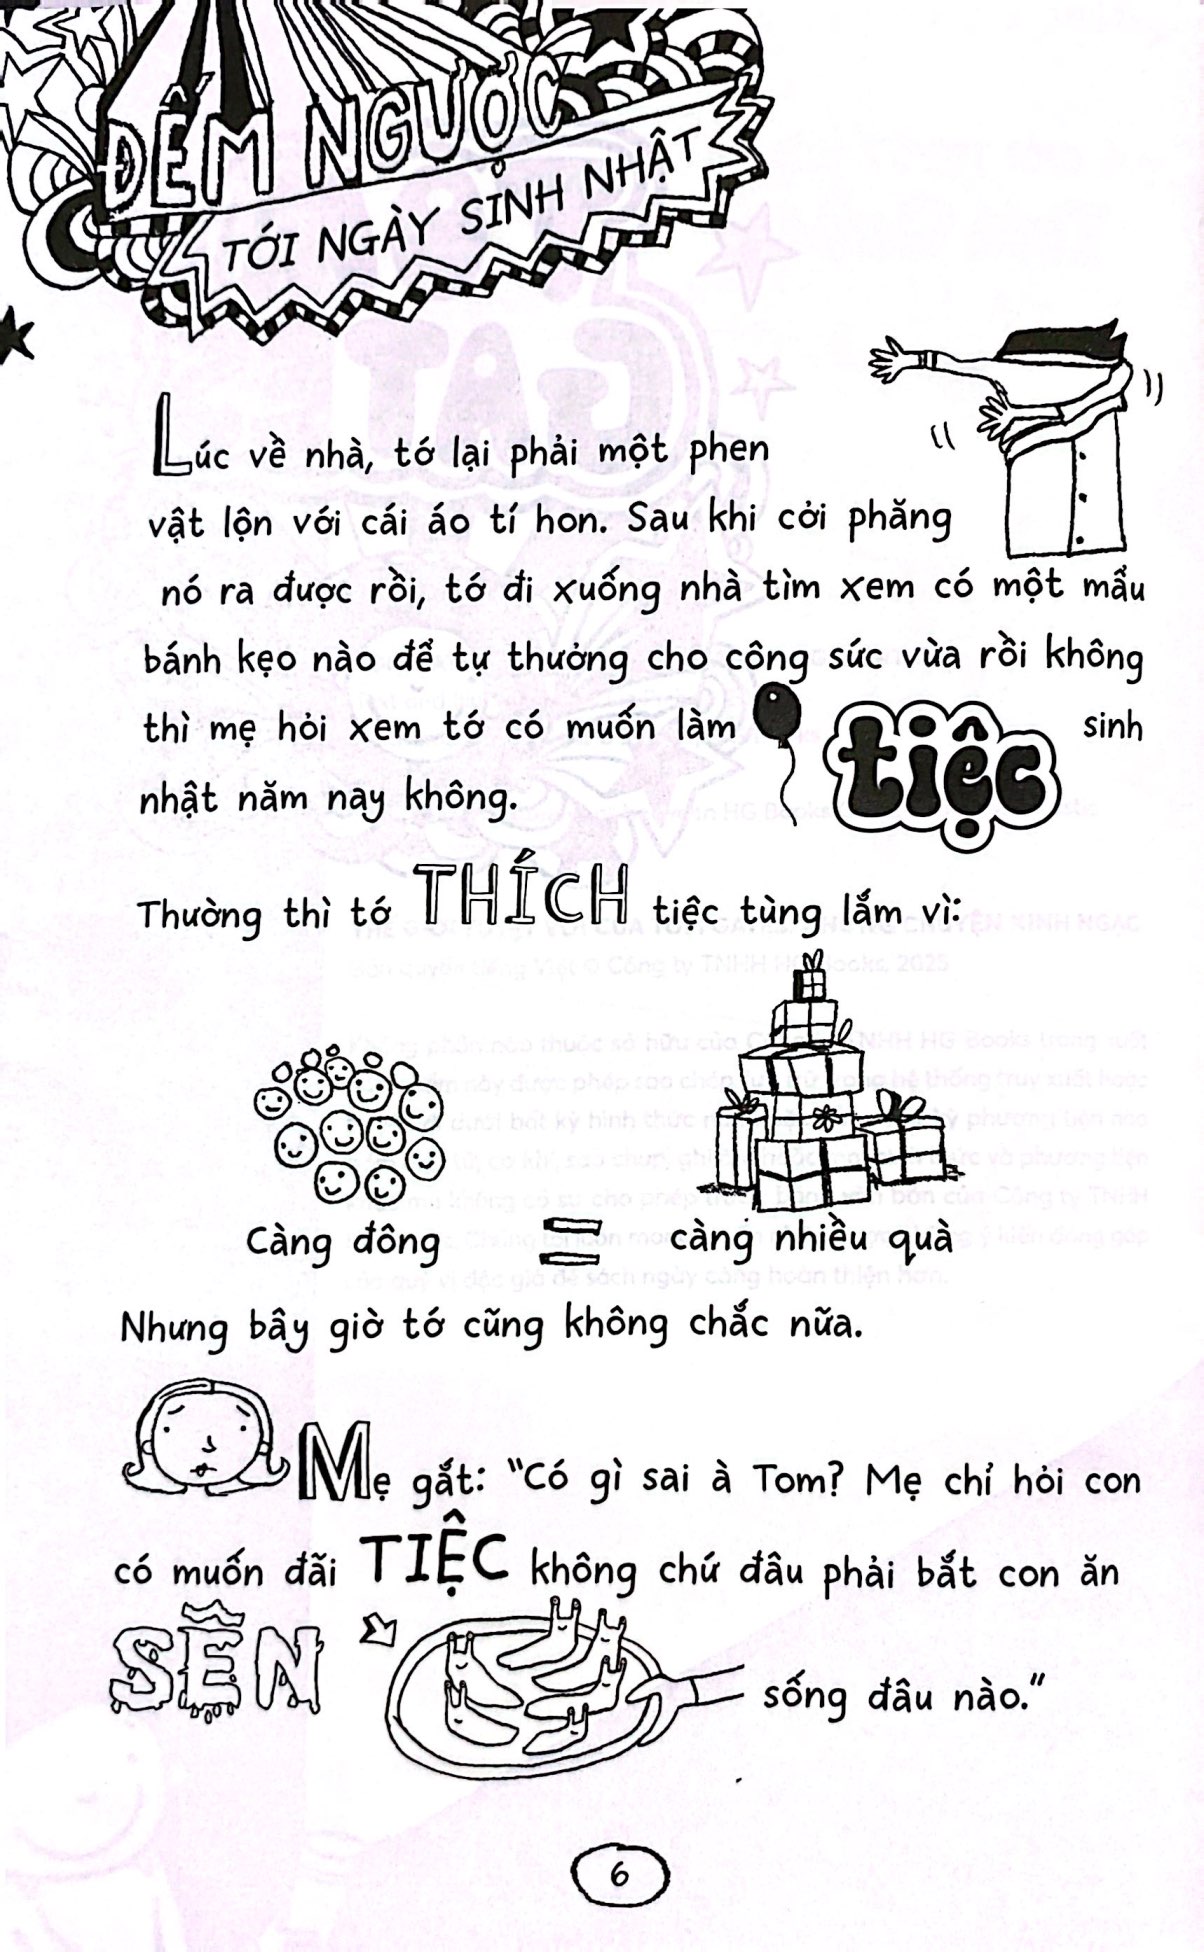 ĐẾM NGƯỢC
TỚI NGÀY SINH NHẬT
Lúc về nhà, tớ lại phải một phen
vật lộn với cái áo tí hon. Sau khi cởi phăng
nó ra được rồi, tớ đi xuống nhà tìm xem có một mẩu
bánh kẹo nào để tự thưởng cho công sức vừa rồi không
thì mẹ hỏi xem tớ có muốn làm tiệc sinh
nhật năm nay không.
Thường thì tớ THÍCH tiệc tùng lắm vì:
Càng đông = càng nhiều quà
Nhưng bây giờ tớ cũng không chắc nữa.
Mẹ gắt: “Có gì sai à Tom? Mẹ chỉ hỏi con
có muốn đãi TIỆC không chứ đâu phải bắt con ăn
SÊN sống đâu nào.”
6